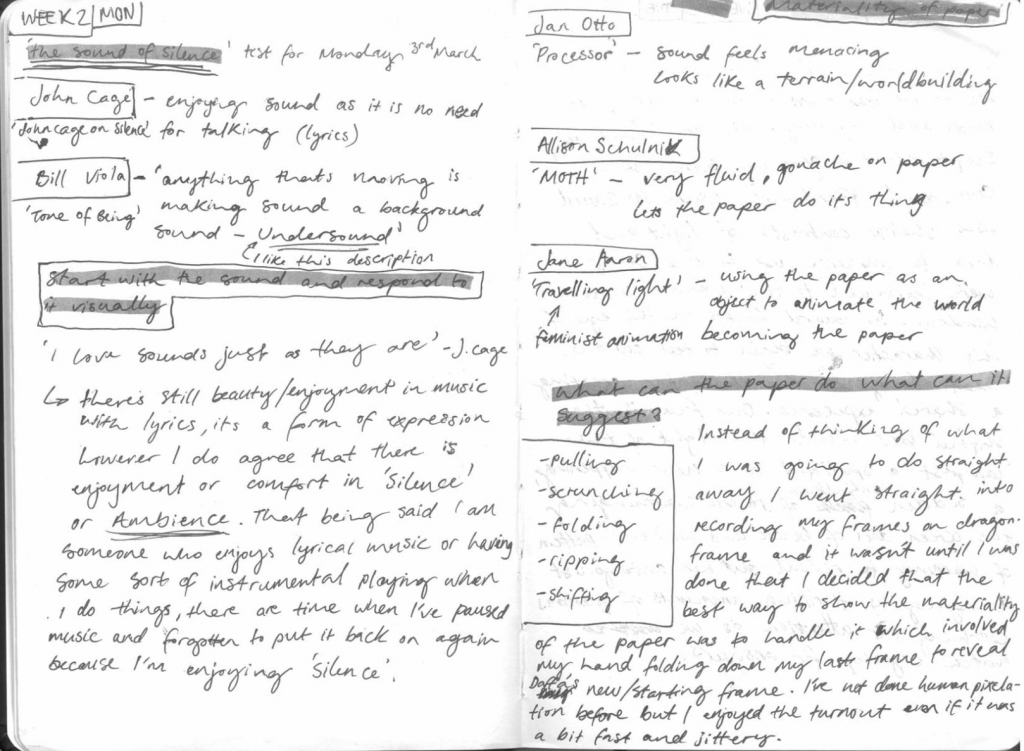 WEEK 2 MON
'the sound of silence' test for Monday 3rd March
John Cage - enjoying sound as it is no need
'John cage on silence' for talking (lyrics)
Bill Viola - 'anything thats moving is
'Tone of Being' making sound a background
sound - Undersound'
I like this description
Start with the sound and respond to
it visually
'I love sounds just as they are' - J.cage
↳ there's still beauty/enjoyment in music
with lyrics, its a form of expression
however I do agree that there is
enjoyment or comfort in 'Silence'
or Ambience. That being said I am
someone who enjoys lyrical music or having
some sort of instrumental playing when
I do things, there are time when I've paused
music and forgotten to put it back on again
because I'm enjoying 'silence'.
Materiality of paper
Jan Otto
'Processor' - sound feels menacing
looks like a terrain/worldbuilding
Allison Schulnik
'MOTH' - very fluid, gouache on paper
lets the paper do it's thing
Jane Aaron
'Travelling light' - using the paper as an
object to animate the world
feminist animation becoming the paper
What can the paper do what can it
suggest?
-pulling
-scrunching
-folding
-ripping
-shifting
Instead of thinking of what
I was going to do straight
away I went straight into
recording my frames on dragon-
frame and it wasn't until I was
done that I decided that the
best way to show the materiality
of the paper was to handle it which involved
my hand folding down my last frame to reveal
new/starting frame. I've not done human pixela-
tion before but I enjoyed the turnout even if it was
a bit fast and jittery.